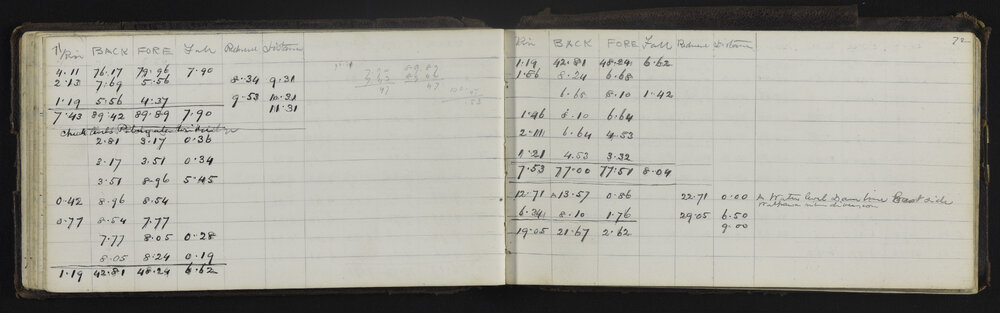 71
Rise BACK FORE Fall Reduce Distance
4.11 76.17 79.96 7.90
2.13 7.69 5.56 8.34 9.31
1.19 5.56 4.37 9.53 10.31
7.43 89.42 89.89 7.90 11.31
check levels
2.81 3.17 0.36
3.17 3.51 0.34
3.51 8.96 5.45
0.42 8.96 8.54
0.77 8.54 7.77
7.77 8.05 0.28
8.05 8.24 0.19
1.19 42.81 48.24 6.62
72
Rise BACK FORE Fall Reduce Distance
1.19 42.81 48.24 6.62
1.56 8.24 6.68
6.68 8.10 1.42
1.46 8.10 6.64
2.11 6.64 4.53
1.21 4.53 3.32
7.53 77.00 77.51 8.04
12.71 13.57 0.86 22.71 0.00 Water level East side
6.34 8.10 1.76 29.05 6.50
19.05 21.67 2.62 9.00